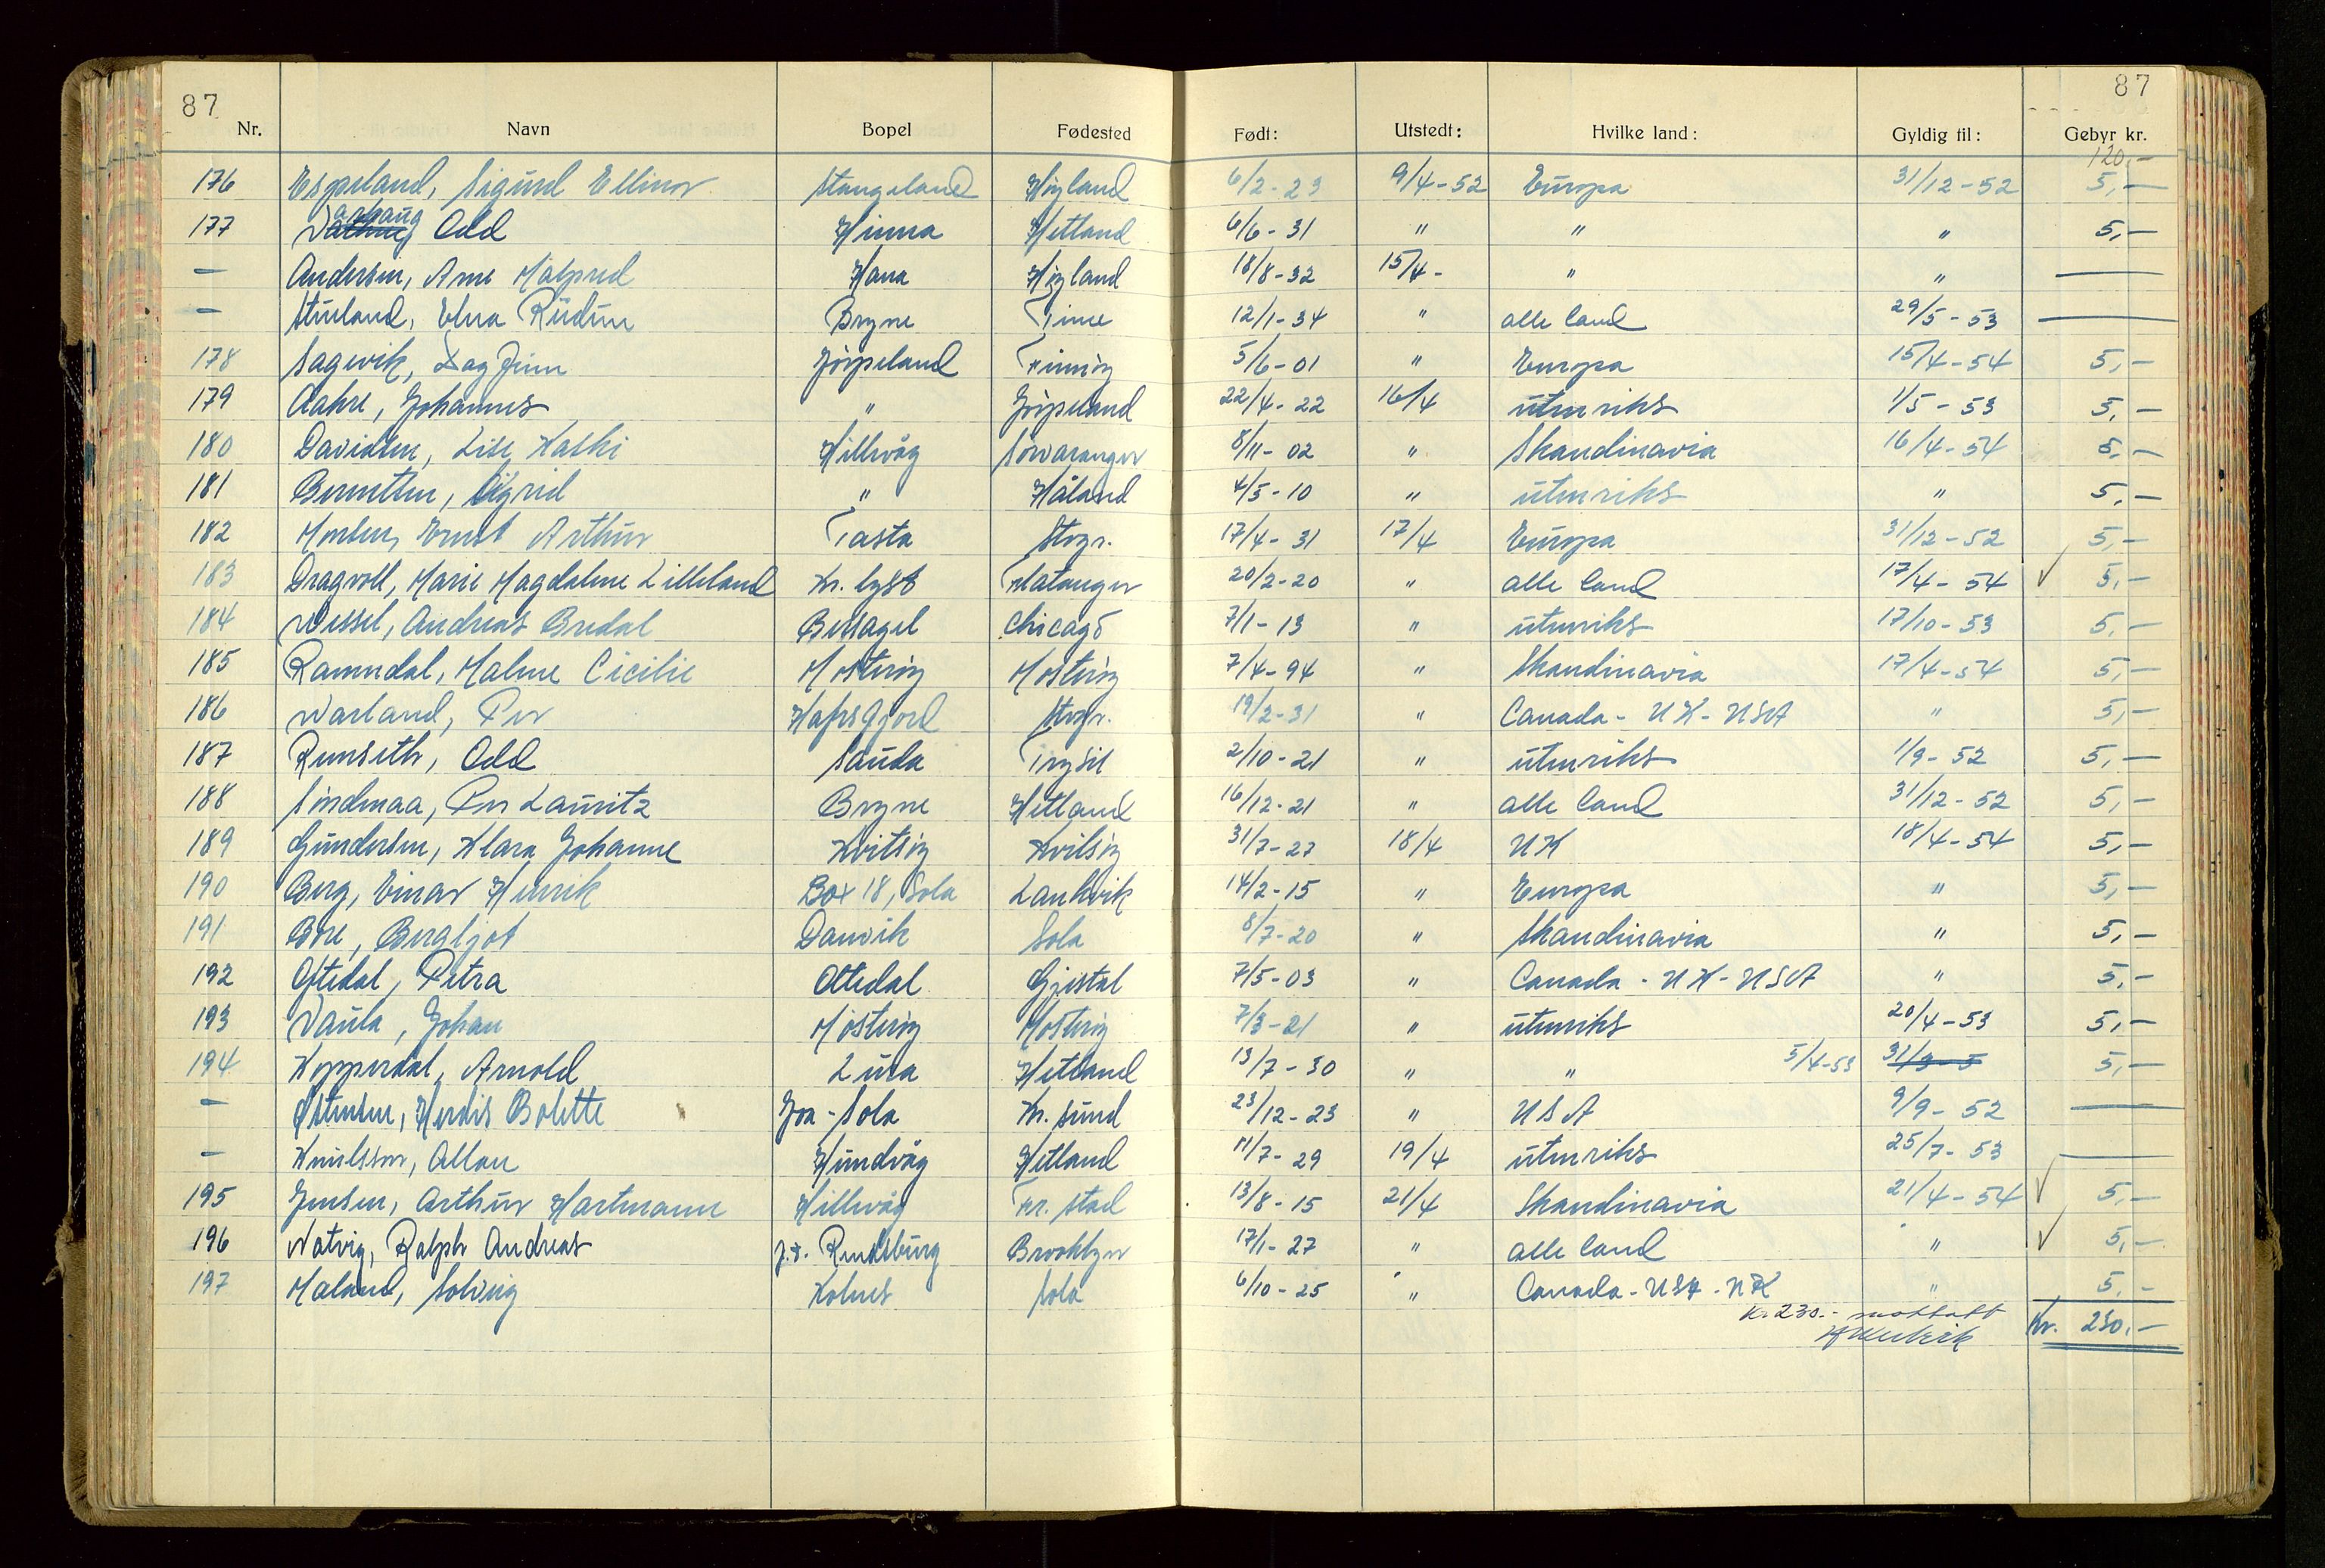 87 87
Nr. Navn Bopel Fødested Født: Utstedt: Hvilke land: Gyldig til: Gebyr kr.
120,-
176 Espeland, Sigurd Ellinor Stangeland Høyland 6/2-23 9/4-52 Europa 31/12-52 5,-
177 Varhaug Odd Hinna Hetland 6/6-31 " " " 5,-
— Andersen, Arne Malfred Hana Høyland 18/8-32 15/4- " " —
— Stueland, Elna Rudine Bryne Time 12/1-34 " alle land 29/5-53 —
178 Sagevik, Dagfinn Jørpeland Finnøy 5/6-01 " Europa 15/4-54 5,-
179 Aahre, Johannes " Jørpeland 22/4-22 16/4 utenriks 1/5-53 5,-
180 Davidsen, Lise Kathi Hillevåg Sørvaranger 8/11-02 " Skandinavia 16/4-54 5,-
181 Berentsen, Sigrid " Håland 4/5-10 " utenriks " 5,-
182 Morten, Ernst Arthur Tasta Stvgr. 17/4-31 17/4 Europa 31/12-52 5,-
183 Dragvoll, Marie Magdalene Lilleland Kr. lyst Matanger 20/2-20 " alle land 17/4-54 ✓ 5,-
184 Wessel, Andreas Bredal Bersagel Chicago 7/1-13 " utenriks 17/10-53 5,-
185 Ramndal, Malene Cicilie Mosterøy Mosterøy 7/4-94 " Skandinavia 17/4-54 5,-
186 Warland, Per Hafrsfjord Stvgr. 19/2-31 " Canada - UK - USA " 5,-
187 Runseth, Odd Sauda Trysil 2/10-21 " utenriks 1/9-52 5,-
188 Sindmaa, Per Lauritz Bryne Hetland 16/12-21 " alle land 31/12-52 5,-
189 Gundersen, Klara Johanne Kvitsøy Kvitsøy 31/7-27 18/4 UK 18/4-54 5,-
190 Berg, Einar Henrik Box 18, Sola Lankvik 14/2-15 " Europa " 5,-
191 Bore, Bergljot Danvik Sola 8/7-20 " Skandinavia " 5,-
192 Oftedal, Petra Oltedal Gjestal 7/5-03 " Canada - UK - USA " 5,-
193 Vaula, Johan Mosterøy Mosterøy 7/3-21 " utenriks 20/4-53 5,-
194 Kopperdal, Arnold Lura Hetland 13/7-30 " " 5/4-53 31/3-5 5,-
— Østensen, Herdis Bolette Joa - Sola Kr. sund 23/12-23 " USA 9/9-52 —
— Knutsson, Allan Hundvåg Hetland 11/7-29 19/4 utenriks 25/7-53 —
195 Jensen, Arthur Hartmann Hillevåg Fr. stad 13/8-15 21/4 Skandinavia 21/4-54 ✓ 5,-
196 Natvig, Ralph Andreas Rendsburg Brooklyn 17/1-27 " alle land " ✓ 5,-
197 Maland, Solveig Kolnes Sola 6/10-25 " Canada - USA - UK " 5,-
Kr 230.- mottatt Kr. 230,-